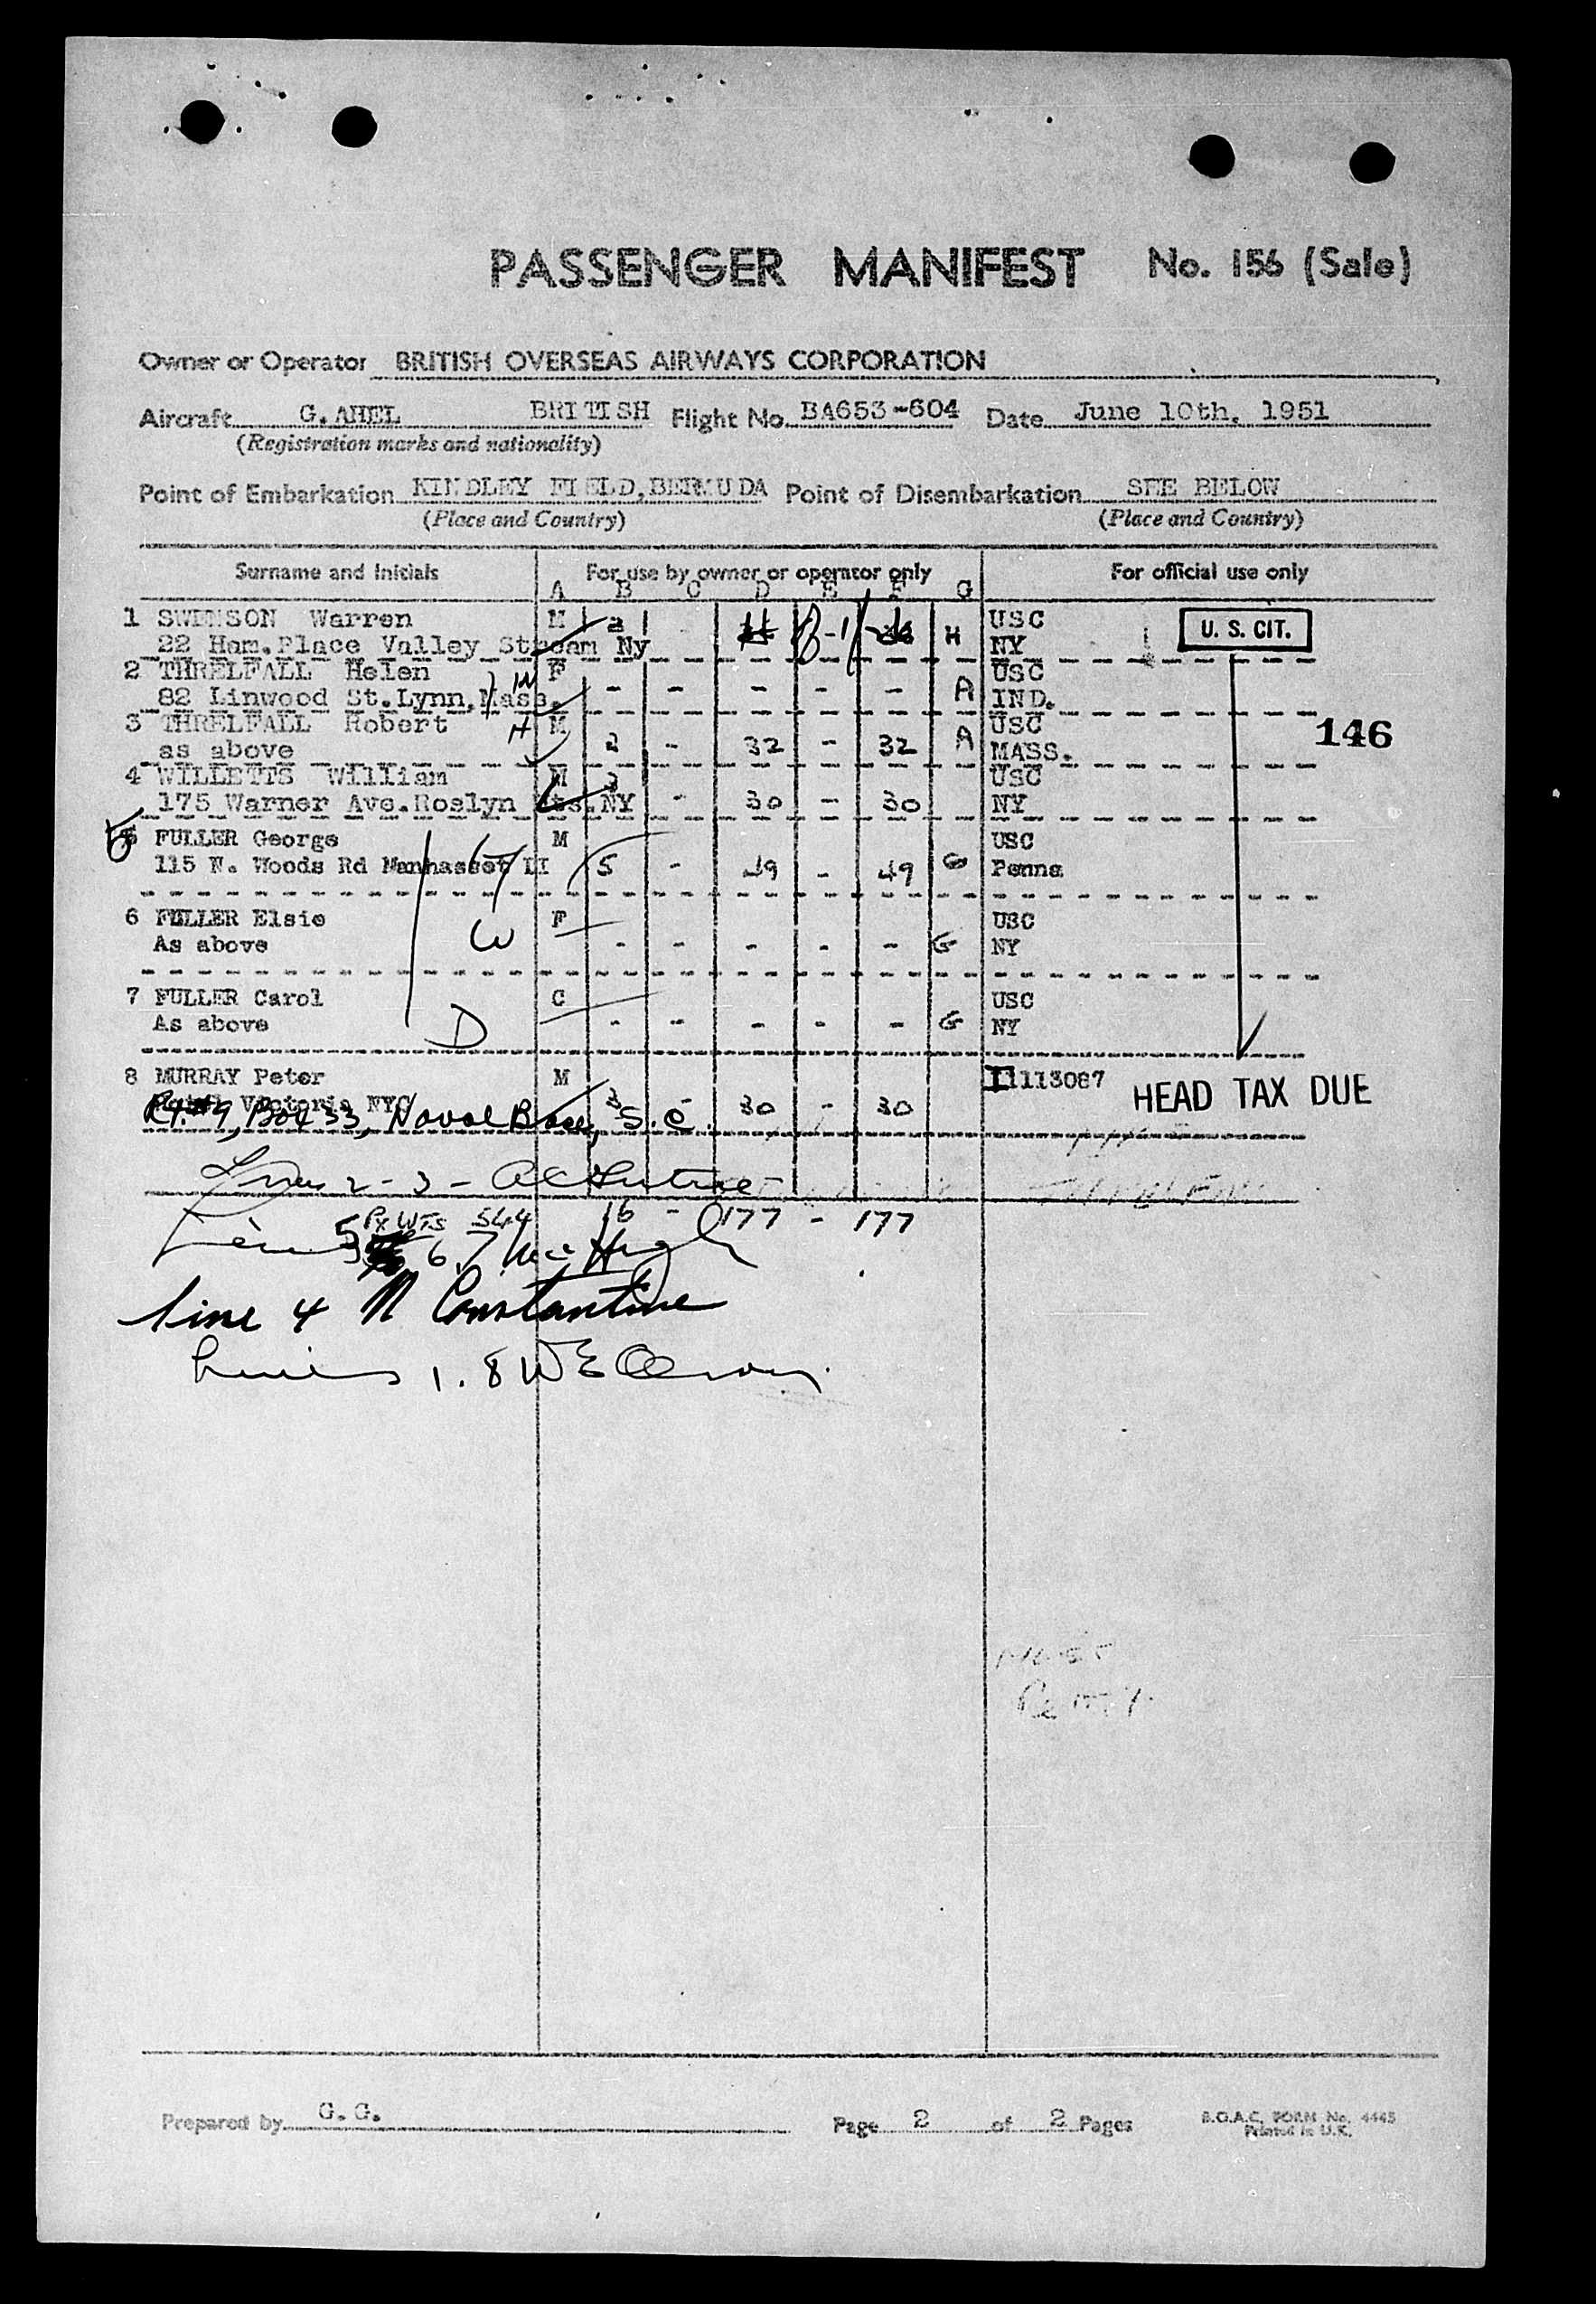 PASSENGER MANIFEST No. 156 (Sale)
Owner or Operator BRITISH OVERSEAS AIRWAYS CORPORATION
Aircraft G.AHEL BRITISH Flight No. BA653-604 Date June 10th. 1951
(Registration marks and nationality)
Point of Embarkation KINDLEY FIELD, BERMUDA Point of Disembarkation SEE BELOW
(Place and Country) (Place and Country)
Surname and Initials For use by owner or operator only For official use only
A B C D E F G
1 SWENSON Warren M 3 USC U. S. CIT.
22 Ham. Place Valley Stream Ny H NY
2 THRELFALL Helen W F USC
82 Linwood St. Lynn, Mass. - - - - - A IND.
3 THRELFALL Robert H M USC 146
as above 2 - 32 - 32 A MASS.
4 WILLETTS William M 3 USC
175 Warner Ave. Roslyn Hts. NY - 30 - 30 NY
5 FULLER George H M USC
115 N. Woods Rd Manhasset LI 5 - 49 - 49 G Penna
6 FULLER Elsie W F USC
As above - - - - - G NY
7 FULLER Carol C USC
As above D - - - - - G NY
8 MURRAY Peter M I1113087 HEAD TAX DUE
Victoria NYC 3 - 30 - 30
Rt. #9, Box 33, Naval Base, S.C.
Lines 2 - 3 -
Px WTS 544 16 - 177 - 177
Lines 5 6.7 McHugh
line 4 N Constantine
Lines 1.8 W E
Prepared by G.G. Page 2 of 2 Pages B.O.A.C. FORM No. 4445
Printed in U.K.